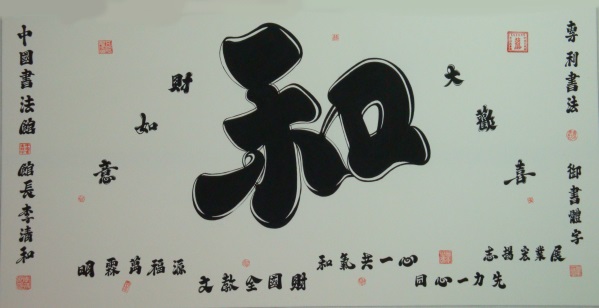 專利書法 御書體字
和
大歡喜
財如意
明霖萬福源
文教全國財
和氣共一心
同心一力先
志揚宏業展
中國書法館 館長李清和